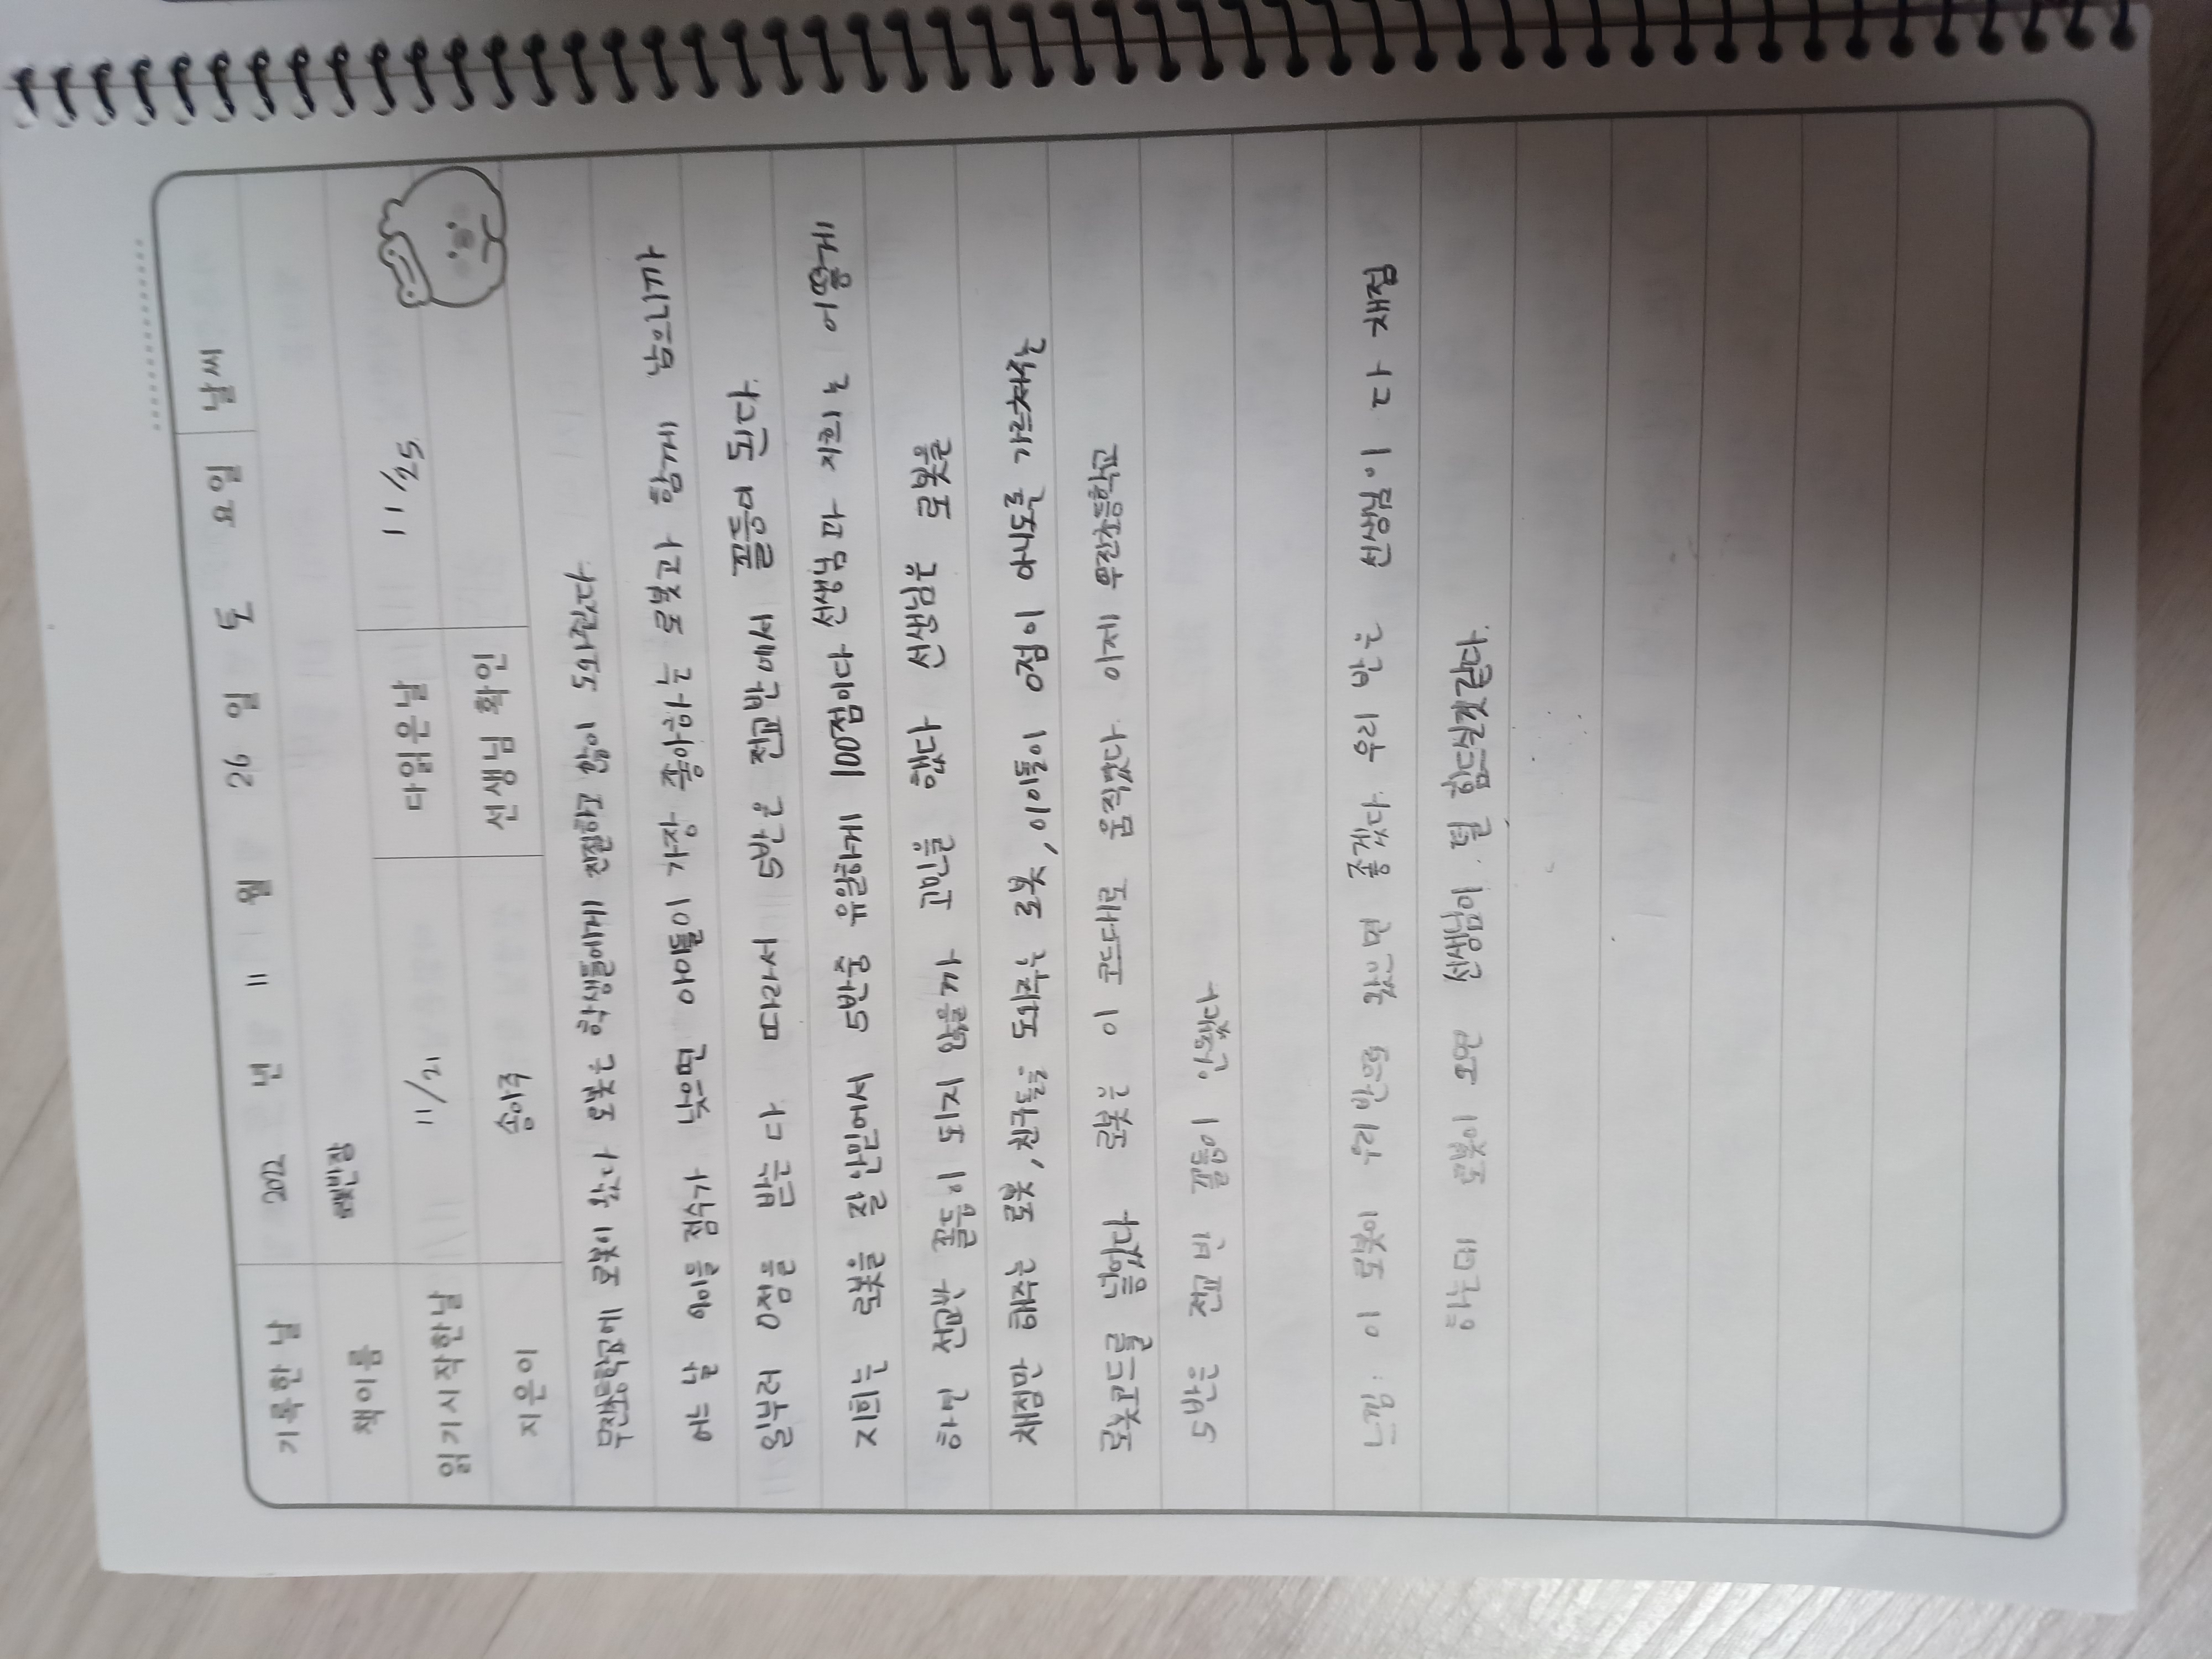 기록한 날 202 년 11 월 26 일 토 요일 날씨
책이름 로봇반장
읽기시작한날 11/21 다읽은날 11/25
지은이 송아주 선생님 확인
로봇이 왔다 로봇은 학생들에게 친절하고 많이 도와준다
어느 날 아이들 점수가 낮으면 아이들이 가장 좋아하는 로봇과 함께 남으니까
일부러 0점을 받는다 따라서 5반은 전교반에서 꼴등이 된다.
지희는 로봇을 잘 안믿어서 5반중 유일하게 100점이다 선생님과 지희는 어떻게
하면 전교반 꼴등이 되지 않을까 고민을 했다 선생님은 로봇을
채점만 해주는 로봇, 친구들을 도와주는 로봇, 아이들이 0점이 아니도록 가르쳐주는
로봇코드를 넣었다 로봇은 이 코드대로 움직였다. 이제 무진초등학교
5반은 전교 반 꼴등이 안됐다
느낌: 이 로봇이 우리반에 있으면 좋겠다. 우리 반은 선생님이 다 채점
하는데 로봇이 오면 선생님이 덜 힘드실것 같다.